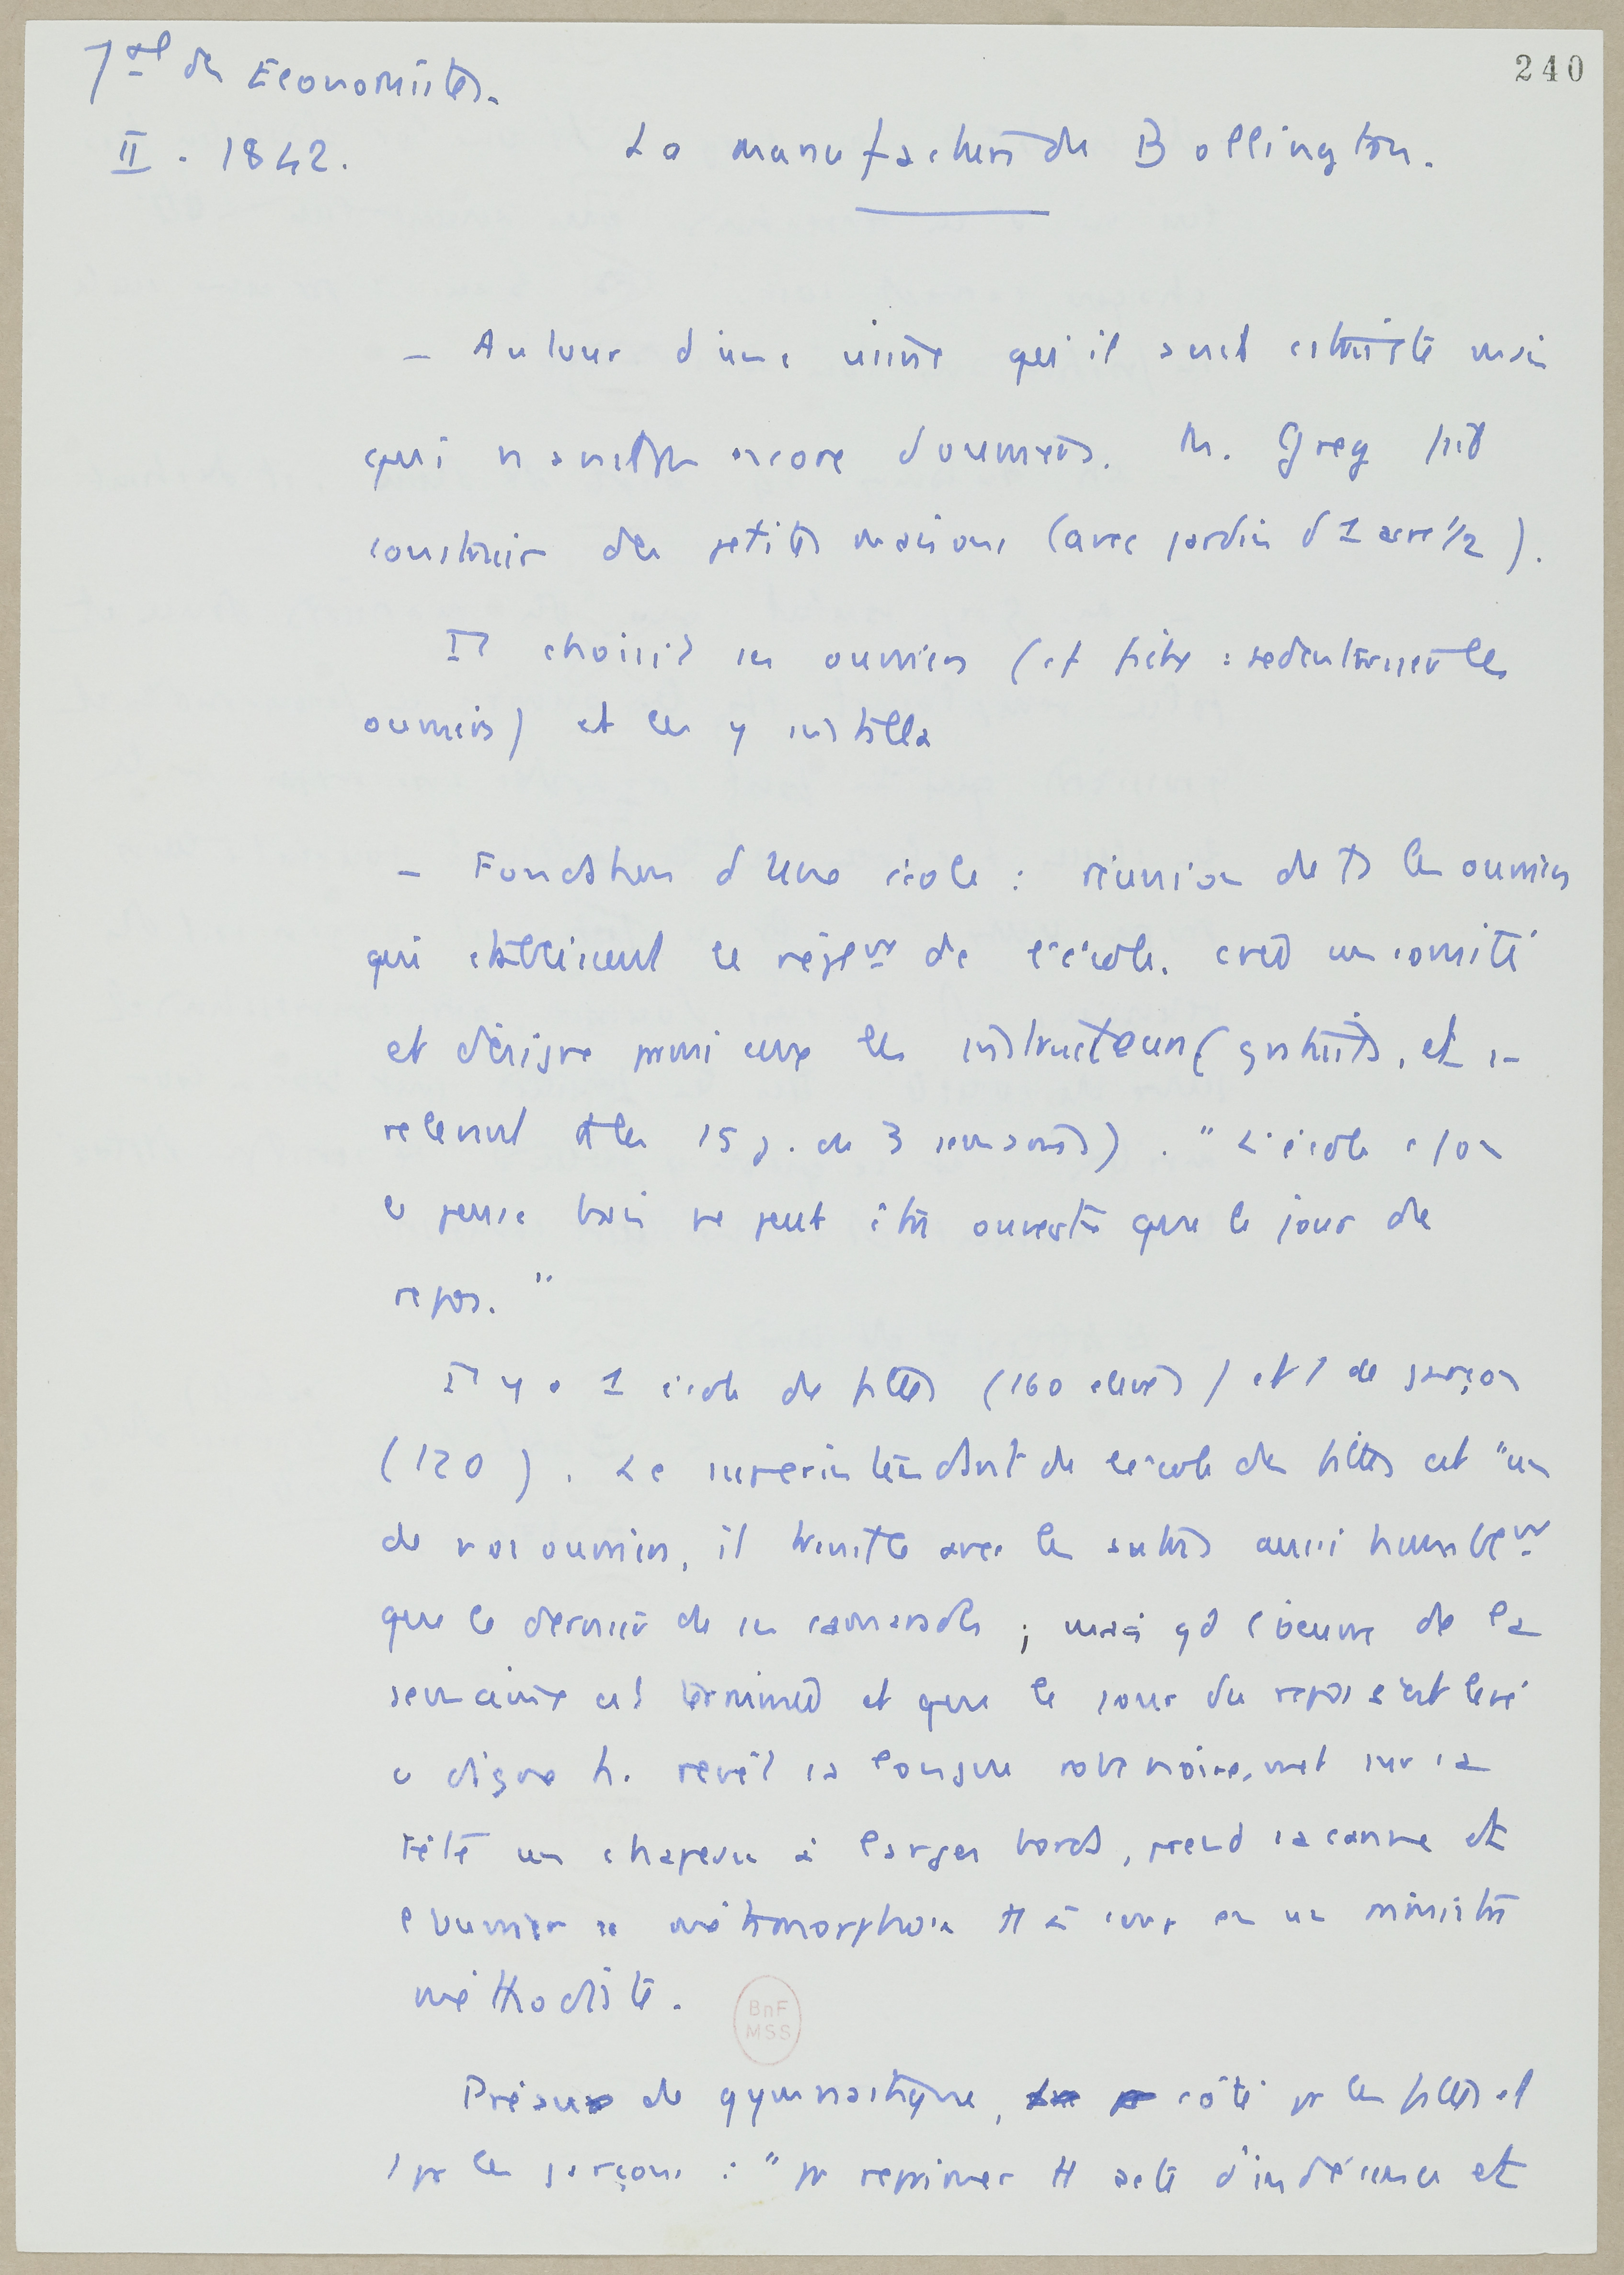 Jal des Economistes.
240
II. 1842.
La manufacture de Bollington.
- Autour d'une usine qu'il avait achetée mais
qui manquait encore d'ouvriers. M. Greg fit
construire des petites maisons (avec jardin d 1 acre 1/2).
Il choisit ses ouvriers (cf fiche : recrutement des
ouvriers) et les y installa
- Fondation d'une école : réunion de ts les ouvriers
qui établissent le règlt de l'école. créent un comité
et désigne parmi eux les instructeurs (gratuits, et se
relevant ts les 15 j. ou 3 semaines). "L'école, on
le pense bien ne peut être ouverte que le jour de
repos."
Il y a 1 école de filles (160 élèves) et 1 de garçons
(120). Le superintendant de l'école des filles est "un
de nos ouvriers, il travaille avec les autres aussi humblemt
que le dernier de ses camarades ; mais qd l'œuvre de la
semaine est terminée et que le jour du repos s'est levé
ce digne h. revêt sa longue robe noire, met sur sa
tête un chapeau à larges bords, prend sa canne et
l'ouvrier se métamorphose tt à coup en un ministre
méthodiste.
Préau de gymnastique, côté pr les filles et
1 pr les garçons : "pr réprimer tt acte d'indécence et
BnF
MSS